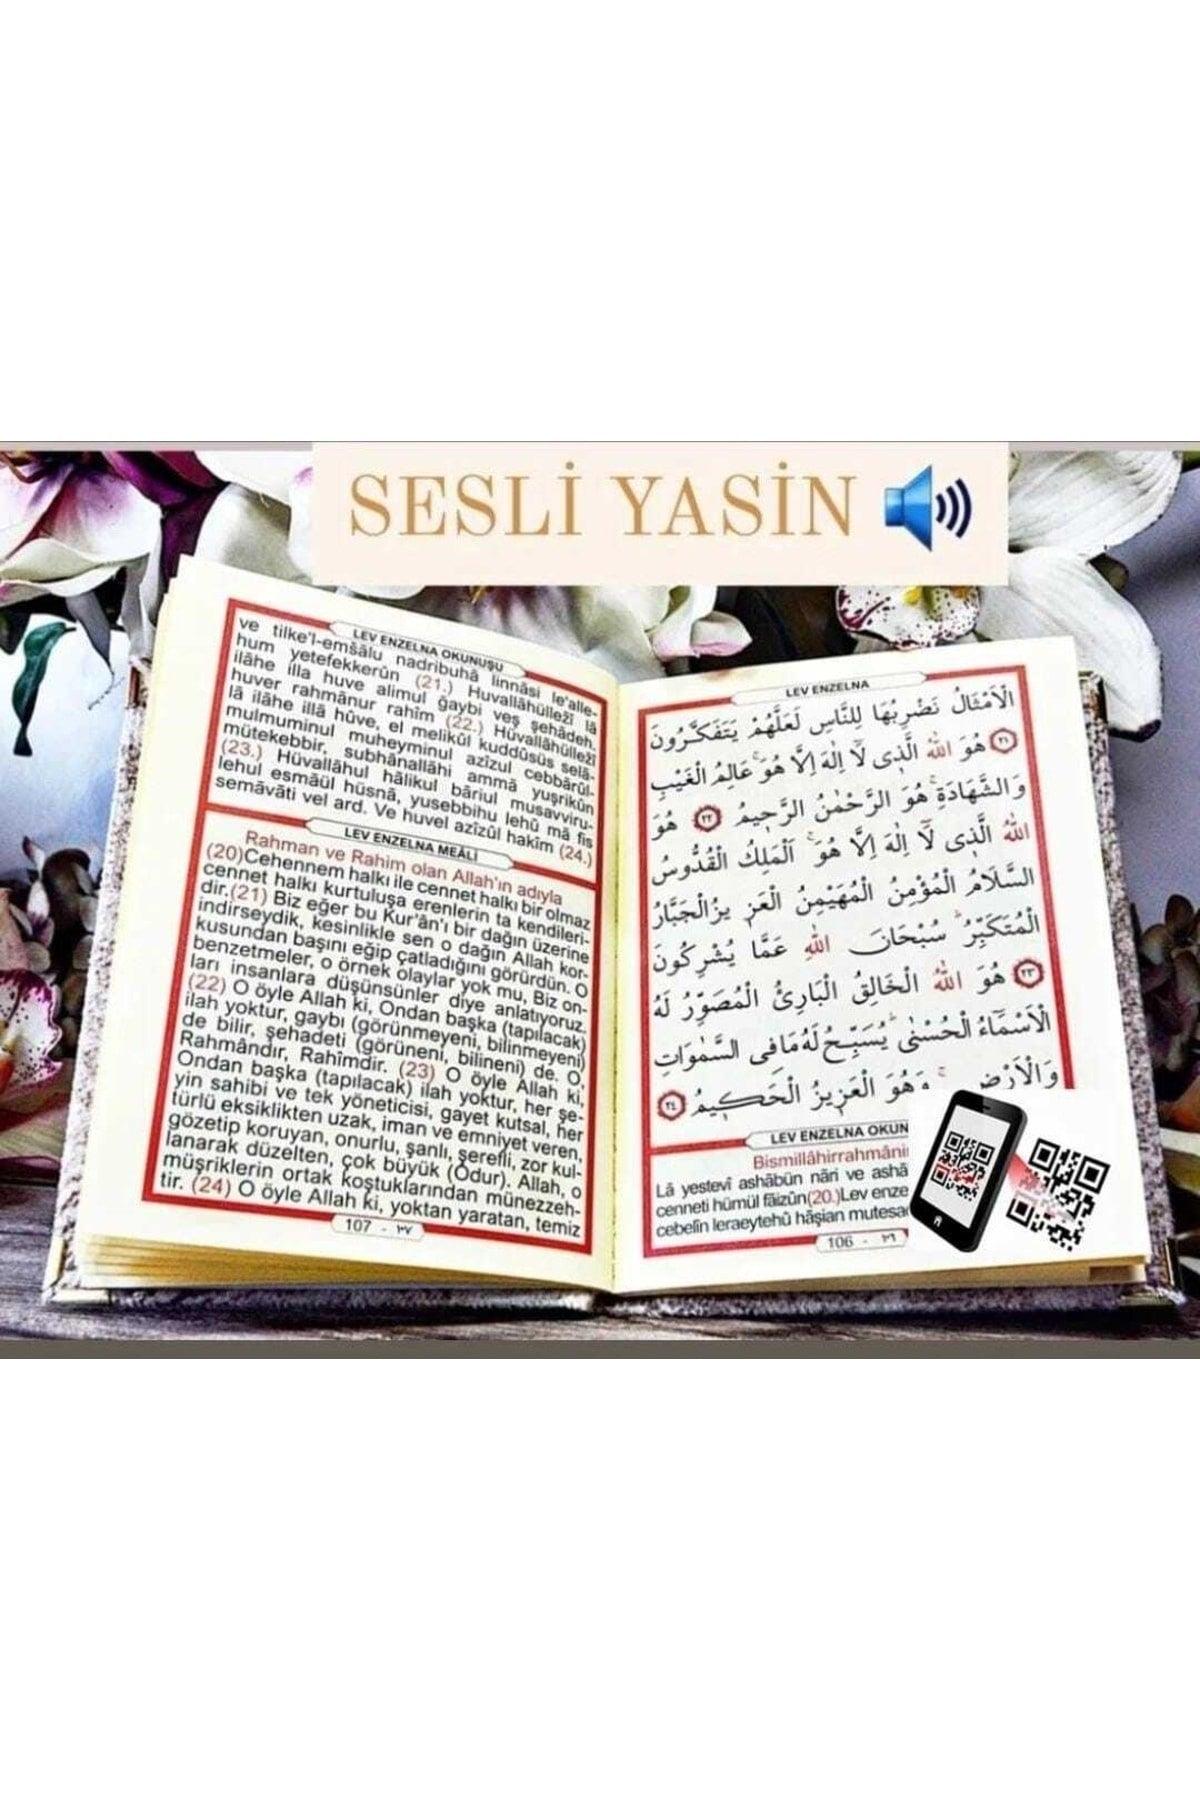 SESLİ YASİN
LEV ENZELNA OKUNUŞU
ve tilke'l-emšâlu nadribuhâ linnâsi le'alle-
hum yetefekkerûn (21.) Huvallâhüllezî lâ
ilâhe illa huve alimul ğaybi veş şehâdeh,
huver rahmânur rahîm (22.) Hüvallâhüllezî
lâ ilâhe illâ hûve, el melikül kuddûsüs selâ-
mulmuminul muheyminul azîzul cebbârûl-
mütekebbir, subhânallâhi ammâ yuşrikûn
(23.) Hüvallâhul hâlikul bâriul musavviru-
lehul esmâül hüsnâ, yusebbihu lehû mâ fis
semâvâti vel ard. Ve huvel azîzûl hakîm (24.)
LEV ENZELNA MEÂLİ
Rahman ve Rahim olan Allah'ın adıyla
(20)Cehennem halkı ile cennet halkı bir olmaz
cennet halkı kurtuluşa erenlerin ta kendileri-
dir.(21) Biz eğer bu Kur'ân'ı bir dağın üzerine
indirseydik, kesinlikle sen o dağın Allah kor-
kusundan başını eğip çatladığını görürdün. O
benzetmeler, o örnek olaylar yok mu, Biz on-
ları insanlara düşünsünler diye anlatıyoruz.
(22) O öyle Allah ki, Ondan başka (tapılacak)
ilah yoktur, gaybı (görünmeyeni, bilinmeyeni)
de bilir, şehadeti (görüneni, bilineni) de. O,
Rahmândır, Rahîmdir. (23) O öyle Allah ki,
Ondan başka (tapılacak) ilah yoktur, her şe-
yin sahibi ve tek yöneticisi, gayet kutsal, her
türlü eksiklikten uzak, iman ve emniyet veren,
gözetip koruyan, onurlu, şanlı, şerefli, zor kul-
lanarak düzelten, çok büyük (Odur). Allah, o
müşriklerin ortak koştuklarından münezzeh-
tir. (24) O öyle Allah ki, yoktan yaratan, temiz
107 - ٣٧
LEV ENZELNA
الْاَمْثَالُ نَضْرِبُهَا لِلنَّاسِ لَعَلَّهُمْ يَتَفَكَّرُونَ
﴿٢١﴾ هُوَ اللّٰهُ الَّذٖى لَا اِلٰهَ اِلَّا هُوَ عَالِمُ الْغَيْبِ
وَالشَّهَادَةِ هُوَ الرَّحْمٰنُ الرَّحٖيمُ ﴿٢٢﴾ هُوَ
اللّٰهُ الَّذٖى لَا اِلٰهَ اِلَّا هُوَ اَلْمَلِكُ الْقُدُّوسُ
السَّلَامُ الْمُؤْمِنُ الْمُهَيْمِنُ الْعَزٖيزُ الْجَبَّارُ
الْمُتَكَبِّرُ سُبْحَانَ اللّٰهِ عَمَّا يُشْرِكُونَ
﴿٢٣﴾ هُوَ اللّٰهُ الْخَالِقُ الْبَارِئُ الْمُصَوِّرُ لَهُ
الْاَسْمَٓاءُ الْحُسْنٰى يُسَبِّحُ لَهُ مَا فِى السَّمٰوَاتِ
وَالْاَرْضِ وَهُوَ الْعَزٖيزُ الْحَكٖيمُ ﴿٢٤﴾
LEV ENZELNA OKUN
Bismillâhirrahmânir
Lâ yestevî ashâbün nâri ve ashâ
cenneti hümül fâizûn(20.)Lev enze
cebelîn leraeytehû hâşian mutesad
106 - ٣٦